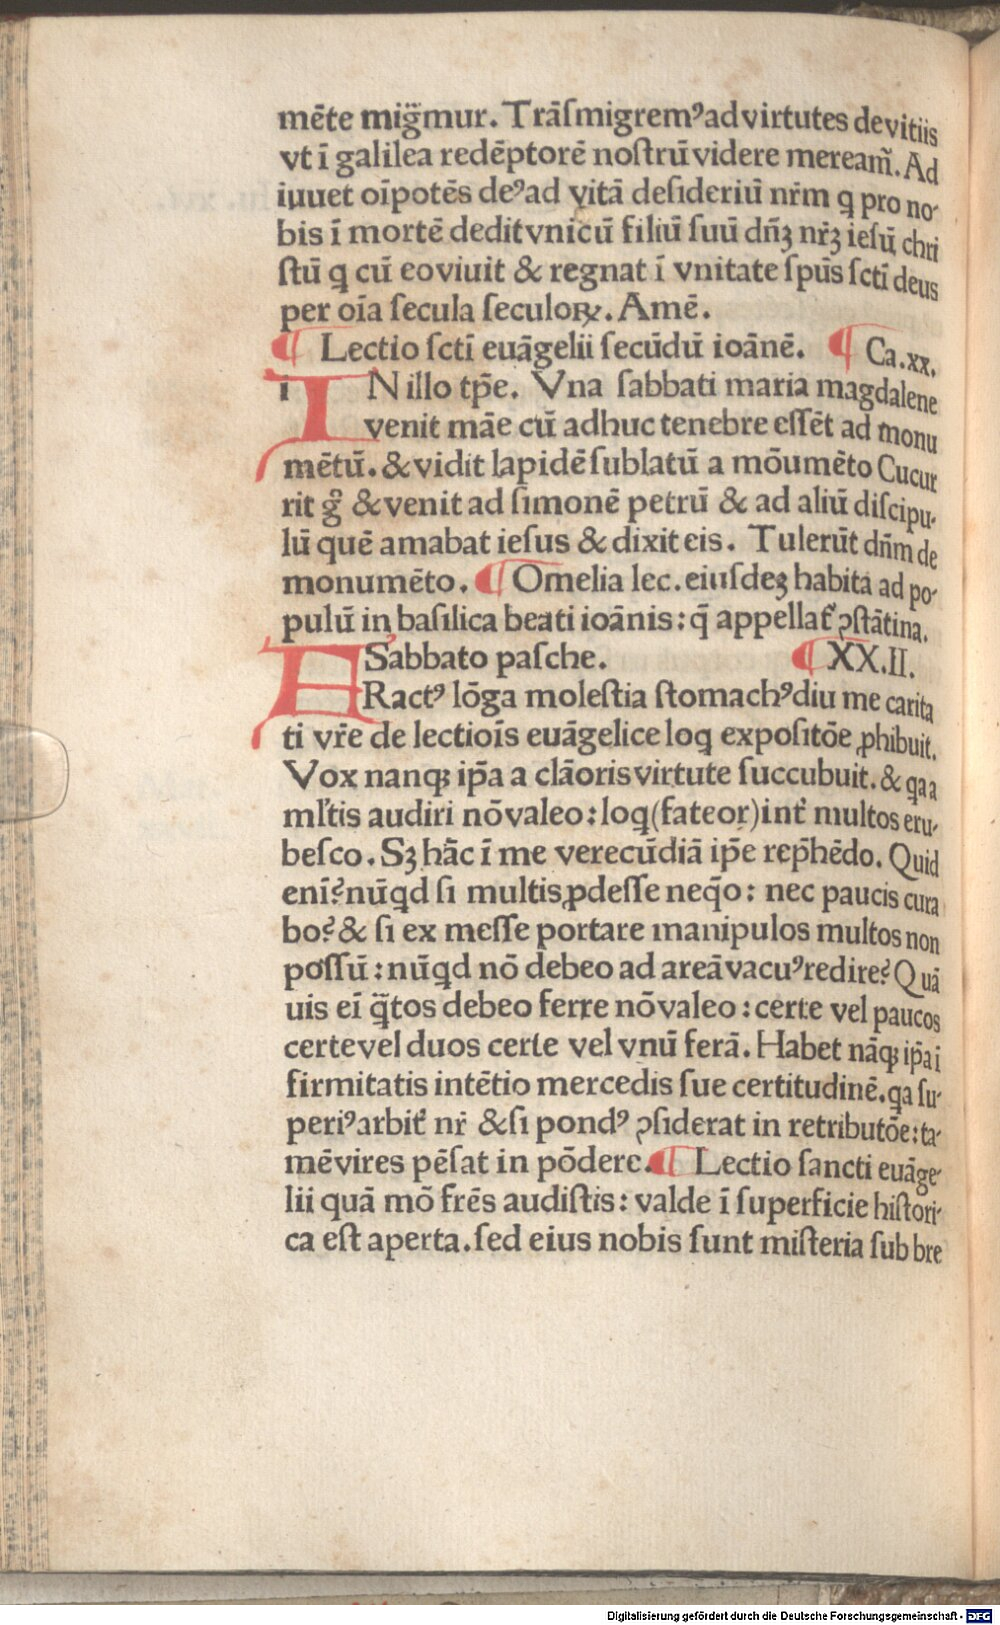 mēte mig̃mur. Trāſmigremꝰ ad virtutes de vitiis
vt ī galilea redēptorē noſtrū videre meream̃. Ad
iuuet oīpotēs deꝰ ad vitā deſideriū nr̄m q pro no-
bis ī mortē dedit vnicū filiū ſuū dn̄ꝫ nr̄ꝫ ieſū chri
ſtū q cū eo viuit & regnat ī vnitate ſpūs ſctī deus
per oīa ſecula ſeculoꝝ. Amē.
¶ Lectio ſctī euāgelii ſecūdū ioānē. ¶ Ca.xx.
IN illo tp̄e. Vna ſabbati maria magdalene
venit māe cū adhuc tenebre eſſēt ad monu
mētū. & vidit lapidē ſublatū a mōumēto Cucur
rit g̊ & venit ad ſimonē petrū & ad aliū diſcipu-
lū quē amabat ieſus & dixit eis. Tulerūt dn̄m de
monumēto. ¶ Omelia lec. eiuſdeꝫ habita ad po-
pulū in baſilica beati ioānis: q̄ appellat᷑ ꝯſtātina.
Sabbato paſche. ¶ XX.II.
FRactꝰ lōga moleſtia ſtomachꝰ diu me carita
ti vr̄e de lectiōis euāgelice loq expoſitōe ꝓhibuit.
Vox nanqꝫ ip̄a a clāoris virtute ſuccubuit. & qa a
ml̄tis audiri nō valeo: loq (fateor) int᷑ multos eru-
beſco. Sꝫ hāc ī me verecūdiā ip̄e rep̄hēdo. Quid
enī? nūqd ſi multis ꝓdeſſe neq̄o: nec paucis cura
bo? & ſi ex meſſe portare manipulos multos non
poſſū: nūqd nō debeo ad areā vacuꝰ redire? Quā
uis eī q̃tos debeo ferre nō valeo: certe vel paucos
certe vel duos certe vel vnū ferā. Habet nāqꝫ ip̄a i
firmitatis intētio mercedis ſue certitudinē. qa ſu-
periꝰ arbit᷑ nr̄ & ſi pondꝰ ꝯſiderat in retributōe: ta-
mē vires pēſat in pōdere. ¶ Lectio ſancti euāge-
lii quā mō fr̄es audiſtis: valde ī ſuperficie hiſtori-
ca eſt aperta. ſed eius nobis ſunt miſteria ſub bre
Digitalisierung gefördert durch die Deutsche Forschungsgemeinschaft - DFG